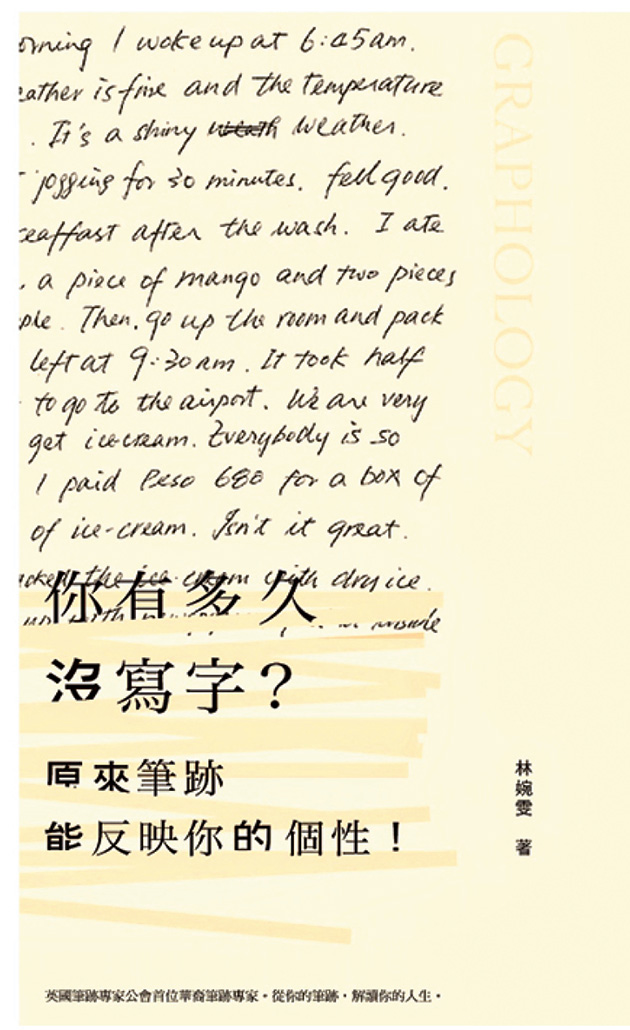 orning I woke up at 6:45am.
eather is fine and the temperature
. It's a shiny weather.
jogging for 30 minutes. fell good.
eaffast after the wash. I ate
, a piece of mango and two pieces
ple. Then, go up the room and pack
left at 9:30am. It took half
to go to the airport. We are very
get icecream. Everybody is so
I paid Peso 680 for a box of
of ice-cream. Isn't it great.
acked the ice-cream with dry ice.
up with
你有多久
沒寫字?
原來筆跡
能反映你的個性!
GRAPHOLOGY
林婉雯 著
英國筆跡專家公會首位華裔筆跡專家。從你的筆跡,解讀你的人生。